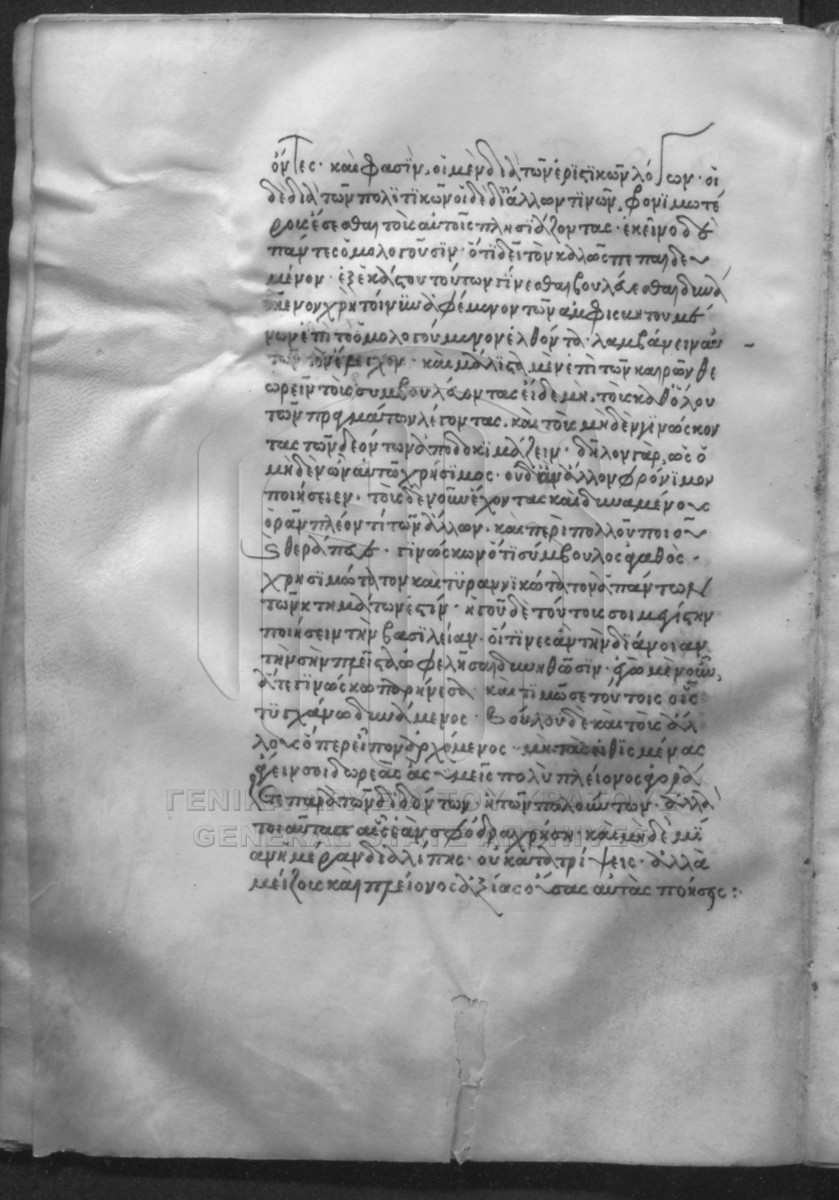 ὄντες· καὶ φασὶν, οἱ μὲν διὰ τῶν ἐριστικῶν λόγων· οἱ
δὲ διὰ τῶν πολιτικῶν οἱ δὲ δι' ἄλλων τινῶν, φρονιμωτέ
ρους ἔσεσθαι τοὺς αὐτοῖς πλησιάζοντας· ἐκεῖνο δὲ
πάντες ὁμολογοῦσιν· ὅτι δεῖ τὸν καλῶς πεπαιδευ
μένον· ἐξ ἑκάστου τούτων φαίνεσθαι βουλεύεσθαι δυνά
μενον χρὴ τοίνυν ἀφέμενον τῶν ἀμφισβητουμέ
νων ἐπὶ τὸ ὁμολογούμενον ἐλθόντα· λαμβάνειν αὐ
τῶν τὸν ἔλεγχον· καὶ μάλιστα μὲν ἐπὶ τῶν καιρῶν θε
ωρεῖν τοὺς συμβουλεύοντας εἰ δὲ μὴ, τοὺς καθόλου
τῶν πραγμάτων λέγοντας, καὶ τοὺς μηδὲν γινώσκον
τας τῶν δεόντων ἀποδοκιμάζειν· δῆλον γὰρ, ὡς ὁ
μηδὲν ὢν αὑτῶ χρήσιμος· οὐδ' ἂν ἄλλον φρόνιμον
ποιήσειεν· τοὺς δὲ νοῦν ἔχοντας καὶ δυναμένους
ὁρᾶν πλέον τὶ τῶν ἄλλων, καὶ περὶ πολλοῦ ποιοῦ
καὶ θεράπευε· γινώσκων ὅτι σύμβουλος ἀγαθὸς
χρησιμώτατον καὶ τυραννικώτατον ἁπάντων
τῶν κτημάτων ἐστίν· ἡγοῦ δὲ τούτους σοι μεγίστην
ποιήσειν τὴν βασιλείαν· οἵτινες ἂν τὴν διάνοιαν
τὴν σὴν πλεῖστα ὠφελῆσαι δυνηθῶσιν· ἐγὼ μὲν οὖν,
ἅ τε γινώσκω παρήνεσα· καὶ τιμῶ σε τούτοις οἷς
τυγχάνω δυνάμενος· βούλου δὲ καὶ τοὺς ἄλ
λους ὅπερ εἶπον ἀρχόμενος μὴ τὰς εἰθισμένας
ἄγειν σοι δωρεὰς ἃς ὑμεῖς πολὺ πλείονος ἀγορά
ζετε παρὰ τῶν διδόντων· ἢ τῶν πωλούντων· ἀλλὰ
τοιαύτας αἷς ἐὰν σφόδρα χρήση· καὶ μηδὲ μί
αν ἡμέραν διαλίπης· οὐ κατατρίψεις· ἀλλὰ
μείζους καὶ πλείονος ἀξίας οὔσας αὐτὰς ποιήσεις: